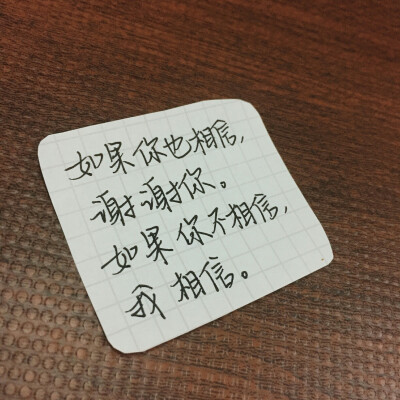 如果你也相信,
谢谢你。
如果你不相信,
我相信。